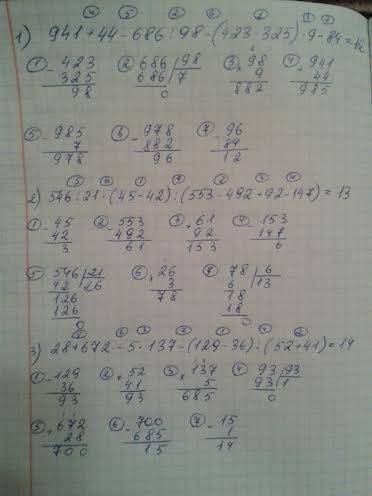 ④ ⑤ ② ⑥ ③ ① ⑦
1) 941+44-686:98-(423-325)·9-84=12
① -423 ② 686|98 ③ ×98 ④ +941
325 686|7 9 44
98 0 882 985
⑤ -985 ⑥ -978 ⑦ -96
7 882 84
978 96 12
⑤ ⑥ ① ⑦ ② ③ ④
2) 546:21·(45-42):(553-492+92-147)=13
① -45 ② -553 ③ +61 ④ -153
42 492 92 147
3 61 153 6
⑤ 546|21 ⑥ ×26 ⑦ 78|6
42|26 3 6|13
126 78 18
126 18
0 0
⑤ ⑥ ③ ⑦ ① ④ ②
3) 28+672-5·137-(129-36):(52+41)=14
① -129 ② +52 ③ ×137 ④ 93|93
36 41 5 93|1
93 93 685 0
⑤ +672 ⑥ -700 ⑦ -15
28 685 1
700 15 14